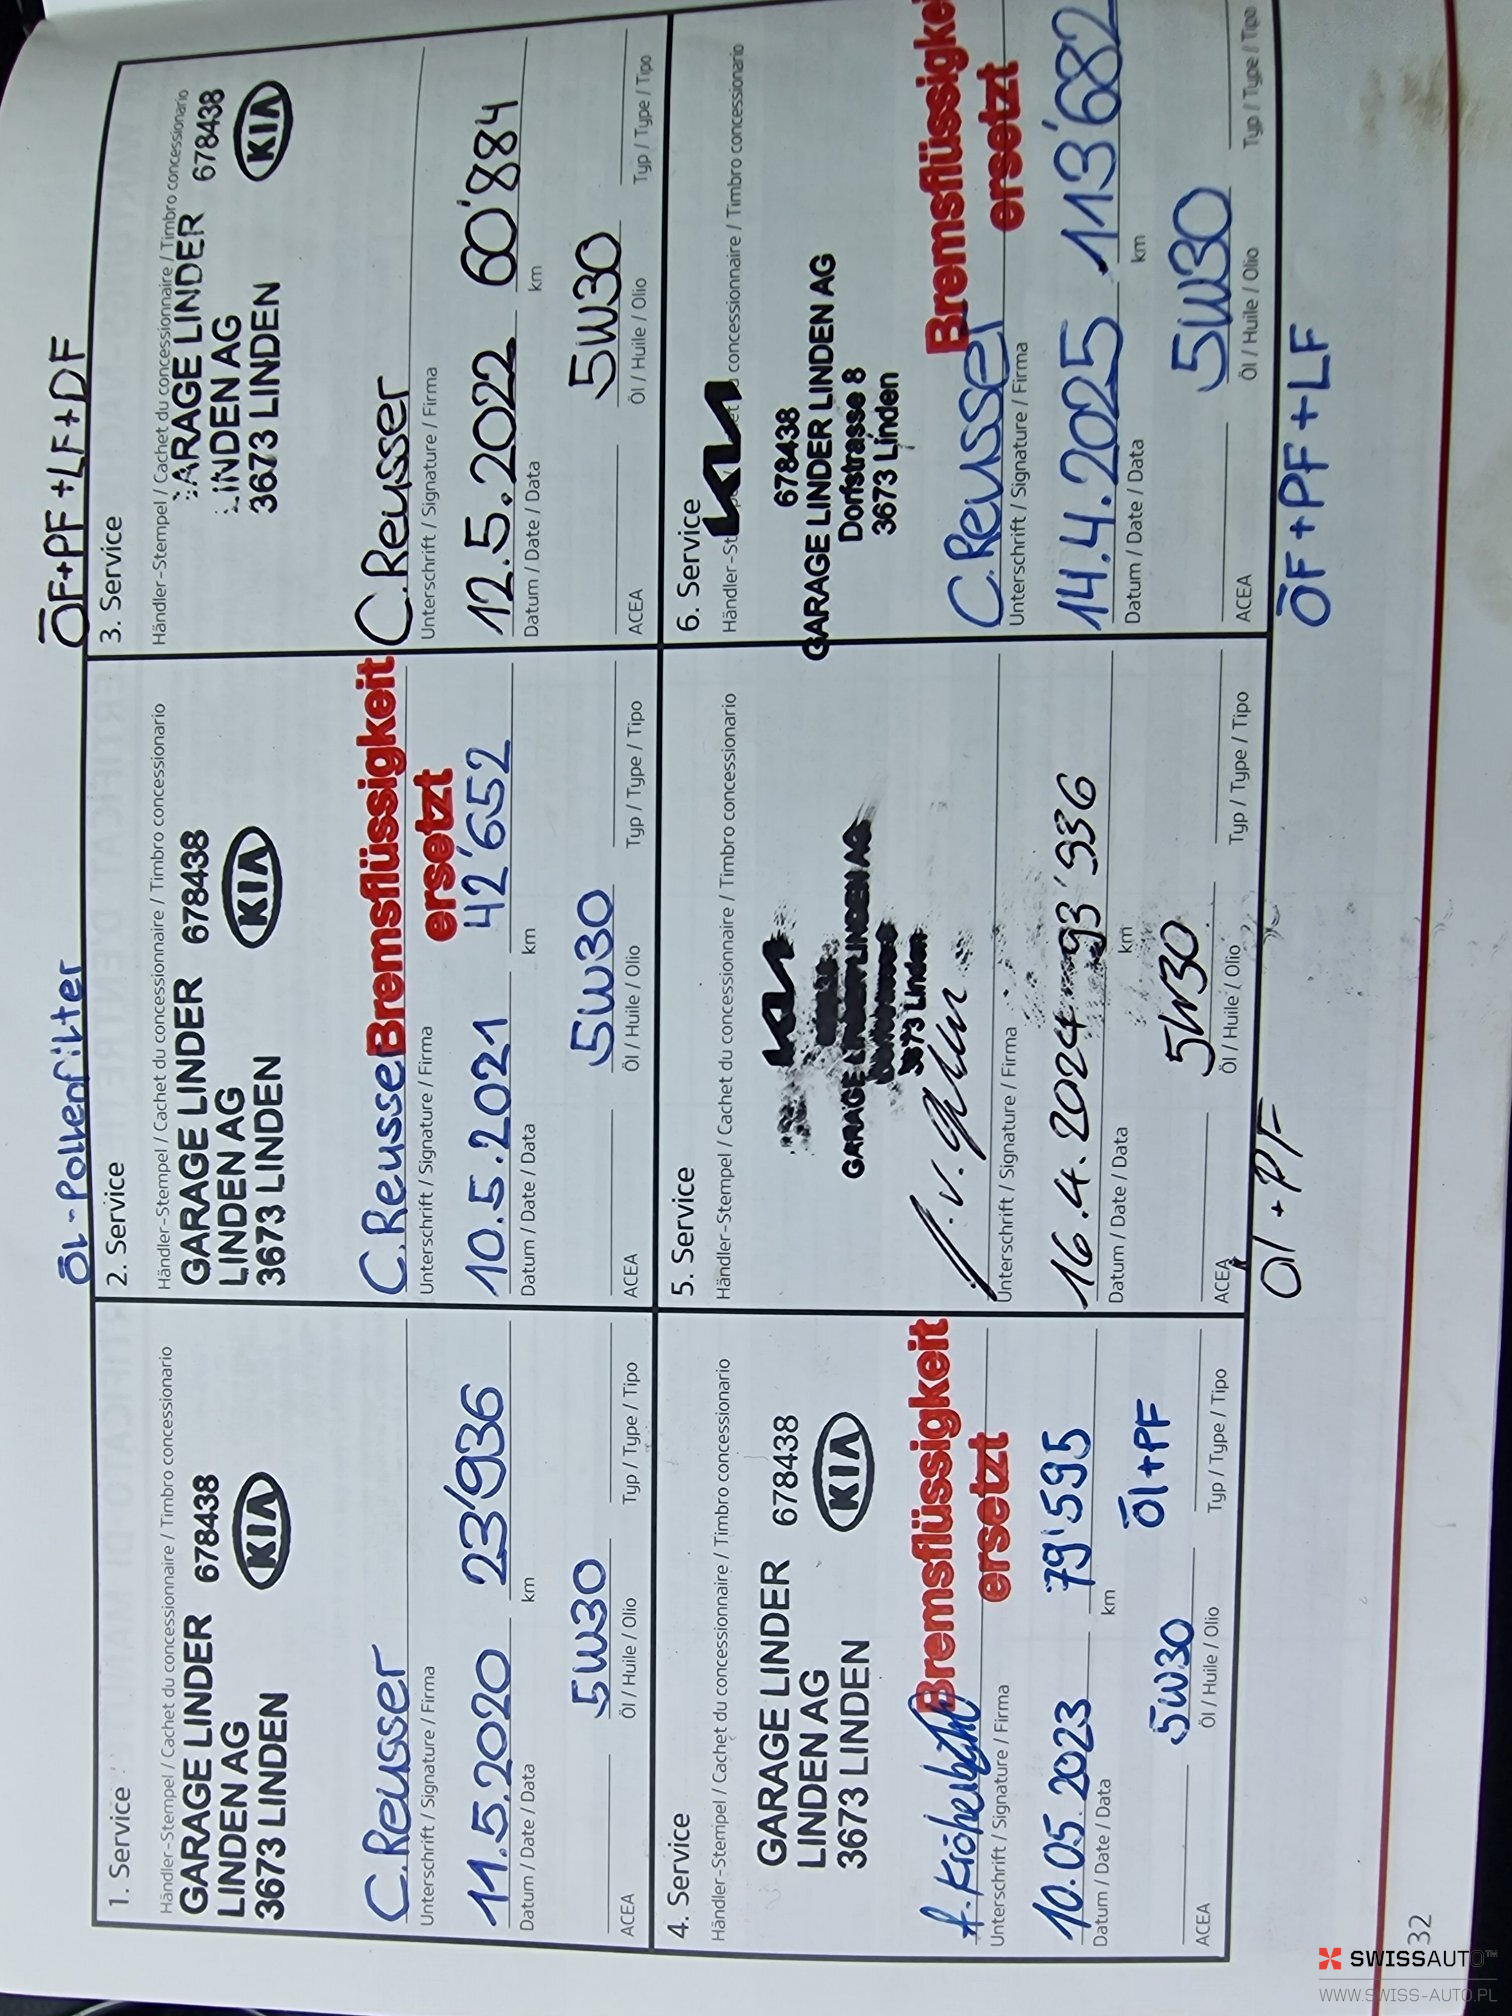 1. Service
Händler-Stempel / Cachet du concessionnaire / Timbro concessionario
GARAGE LINDER 678438
LINDEN AG
3673 LINDEN
KIA
C.Reusser
Unterschrift / Signature / Firma
11.5.2020 23'936
Datum / Date / Data km
5W30
ACEA Öl / Huile / Olio Typ / Type / Tipo
Öl-Pollenfilter
2. Service
Händler-Stempel / Cachet du concessionnaire / Timbro concessionario
GARAGE LINDER 678438
LINDEN AG
3673 LINDEN
KIA
C.Reusser Bremsflüssigkeit
ersetzt
Unterschrift / Signature / Firma
10.5.2021 42'652
Datum / Date / Data km
5W30
ACEA Öl / Huile / Olio Typ / Type / Tipo
ÖF+PF+LF+DF
3. Service
Händler-Stempel / Cachet du concessionnaire / Timbro concessionario
GARAGE LINDER 678438
LINDEN AG
3673 LINDEN
KIA
C.Reusser
Unterschrift / Signature / Firma
12.5.2022 60'884
Datum / Date / Data km
5W30
ACEA Öl / Huile / Olio Typ / Type / Tipo
4. Service
Händler-Stempel / Cachet du concessionnaire / Timbro concessionario
GARAGE LINDER 678438
LINDEN AG
3673 LINDEN
KIA
Bremsflüssigkeit
ersetzt
Unterschrift / Signature / Firma
10.05.2023 79'595
Datum / Date / Data km
5W30 Öl+PF
ACEA Öl / Huile / Olio Typ / Type / Tipo
5. Service
Händler-Stempel / Cachet du concessionnaire / Timbro concessionario
KIA
GARAGE LINDER LINDEN AG
3673 Linden
Unterschrift / Signature / Firma
16.4.2024 93'936
Datum / Date / Data km
5W30
ACEA Öl / Huile / Olio Typ / Type / Tipo
Öl+PF
6. Service
Händler-Stempel / Cachet du concessionnaire / Timbro concessionario
KIA
678438
GARAGE LINDER LINDEN AG
Dorfstrasse 8
3673 Linden
C.Reusser Bremsflüssigkei
ersetzt
Unterschrift / Signature / Firma
14.4.2025 113'682
Datum / Date / Data km
5W30
ACEA Öl / Huile / Olio Typ / Type / Tipo
ÖF+PF+LF
32
SWISSAUTO™
WWW.SWISS-AUTO.PL